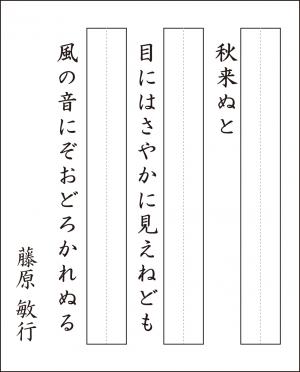 秋来ぬと
目にはさやかに見えねども
風の音にぞおどろかれぬる
藤原 敏行